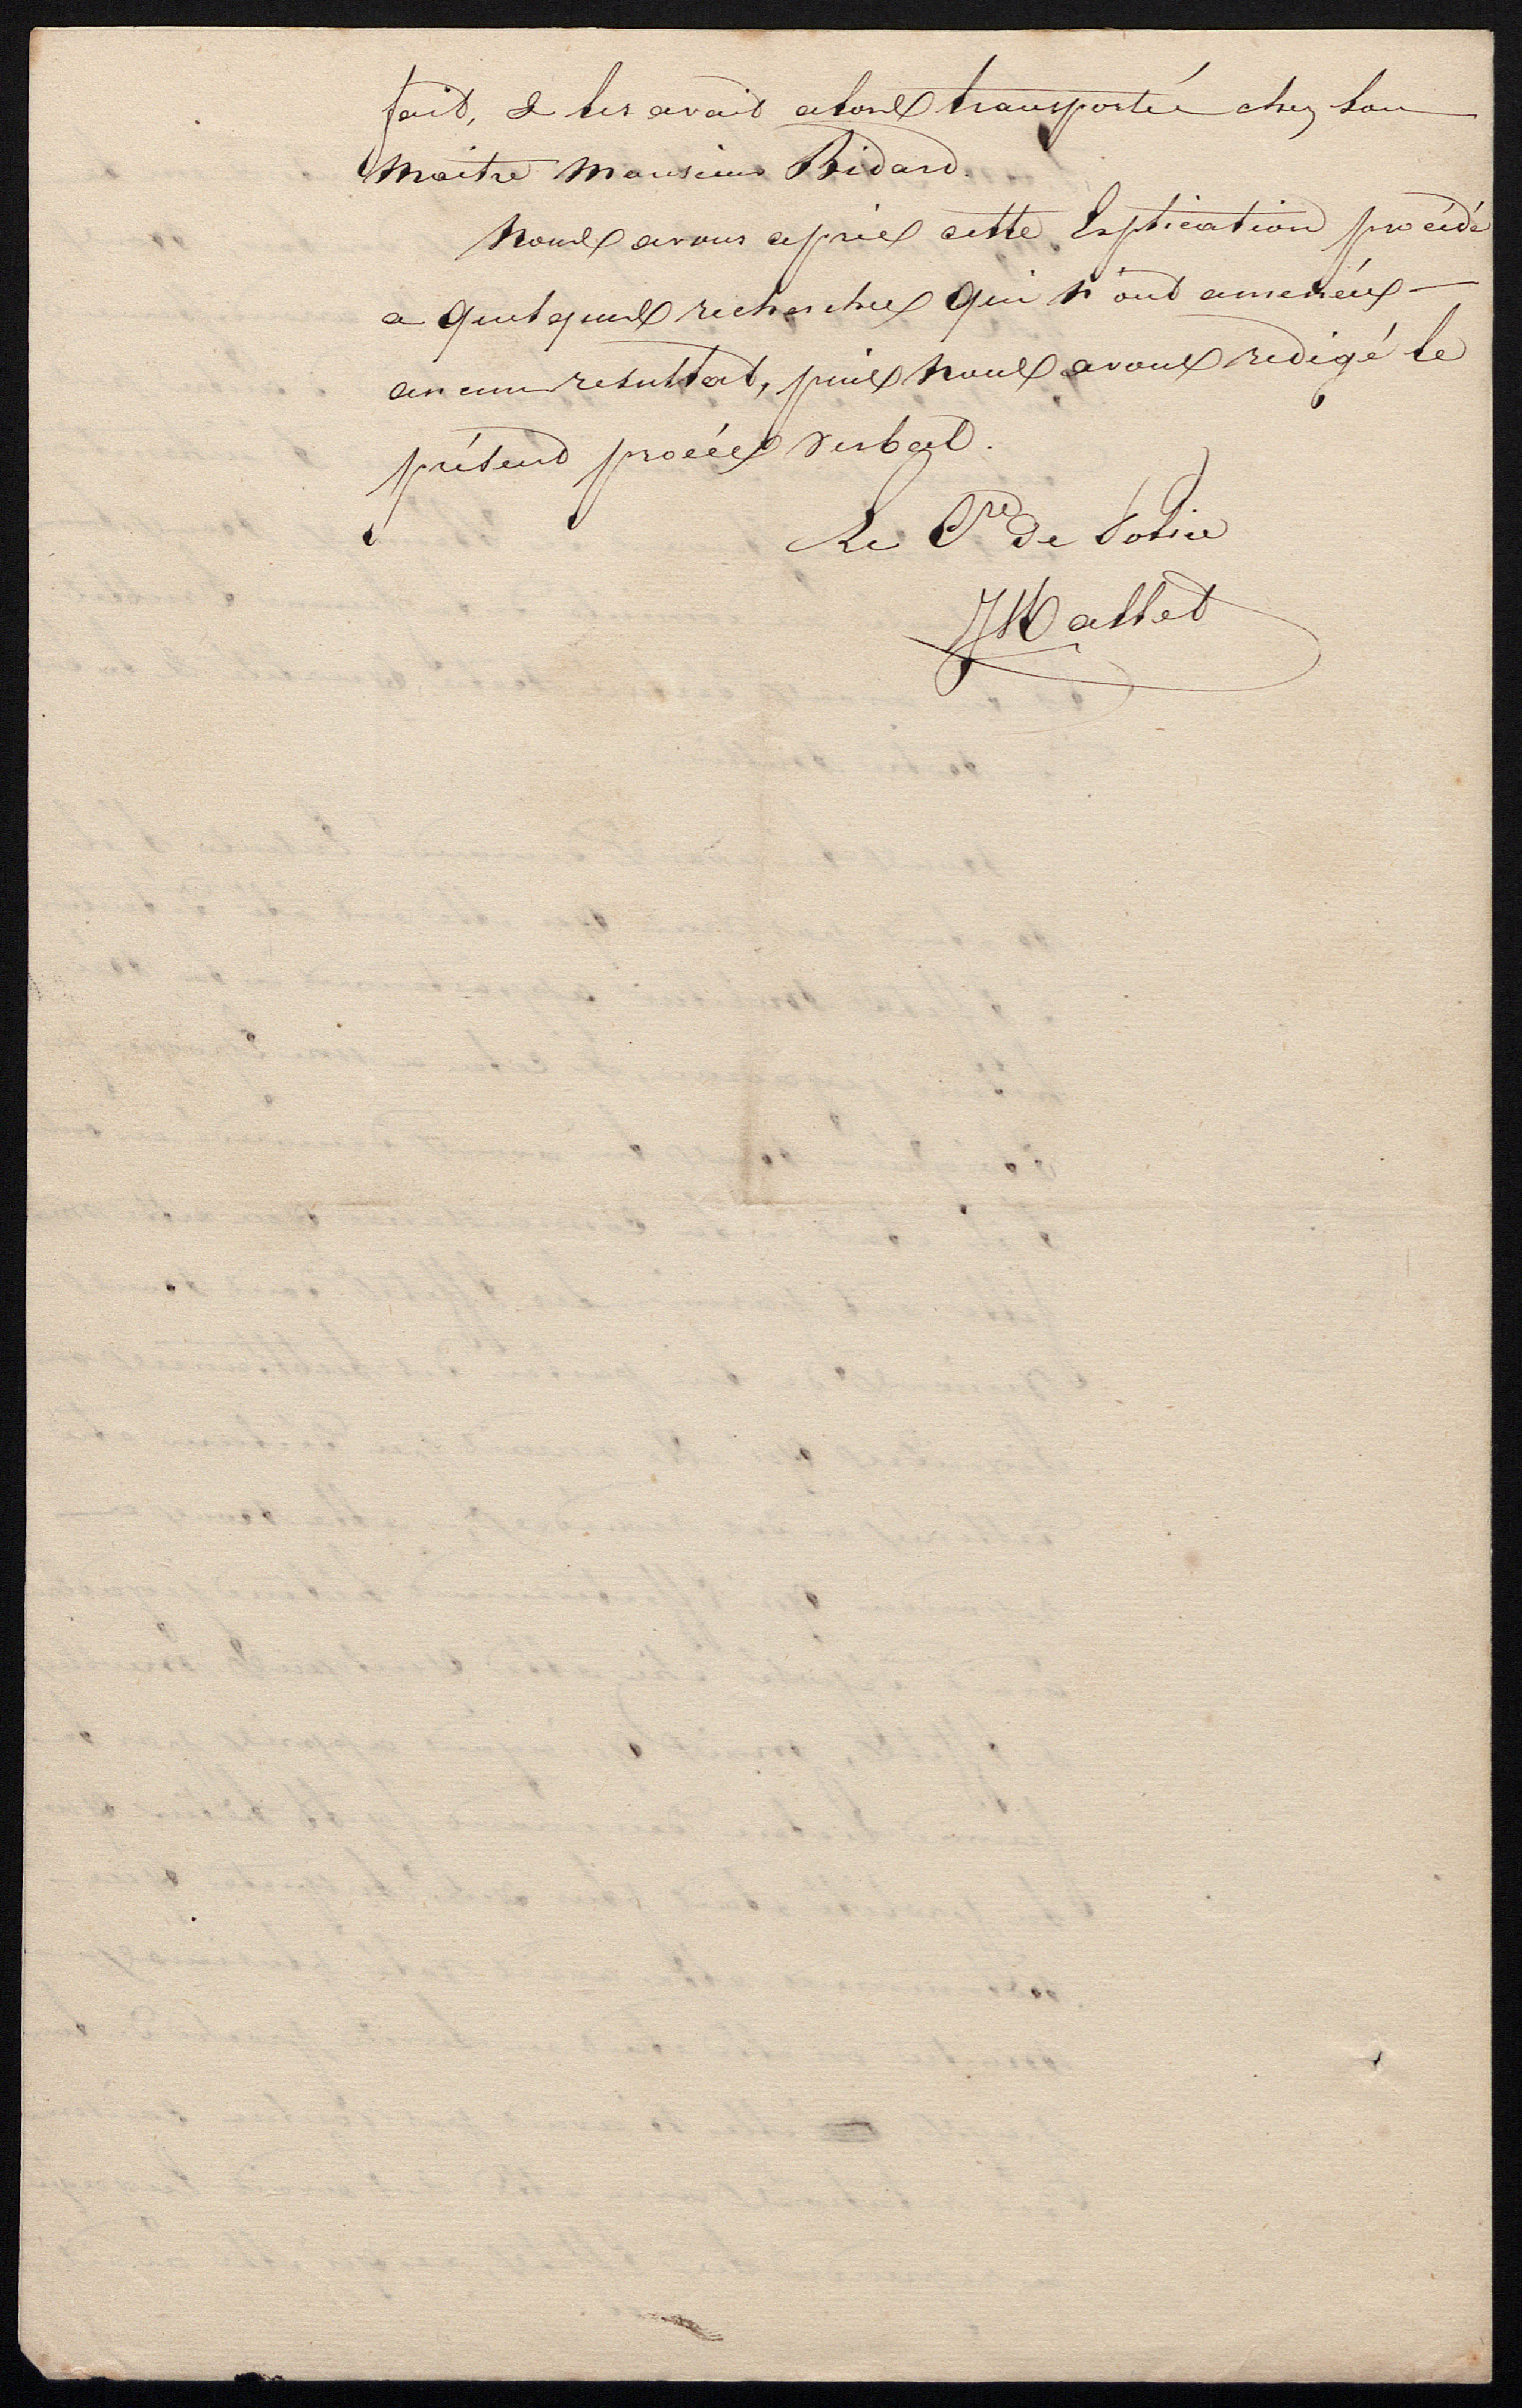 fait, & les avait alors transportée chez son
maitre monsieur Bidard.
Nous avons après cette Explication procédé
a quelques recherches qui n'ont amenées —
aucun resultat, puis nous avons redigé le
présent procès verbal.
Le Cre de Police